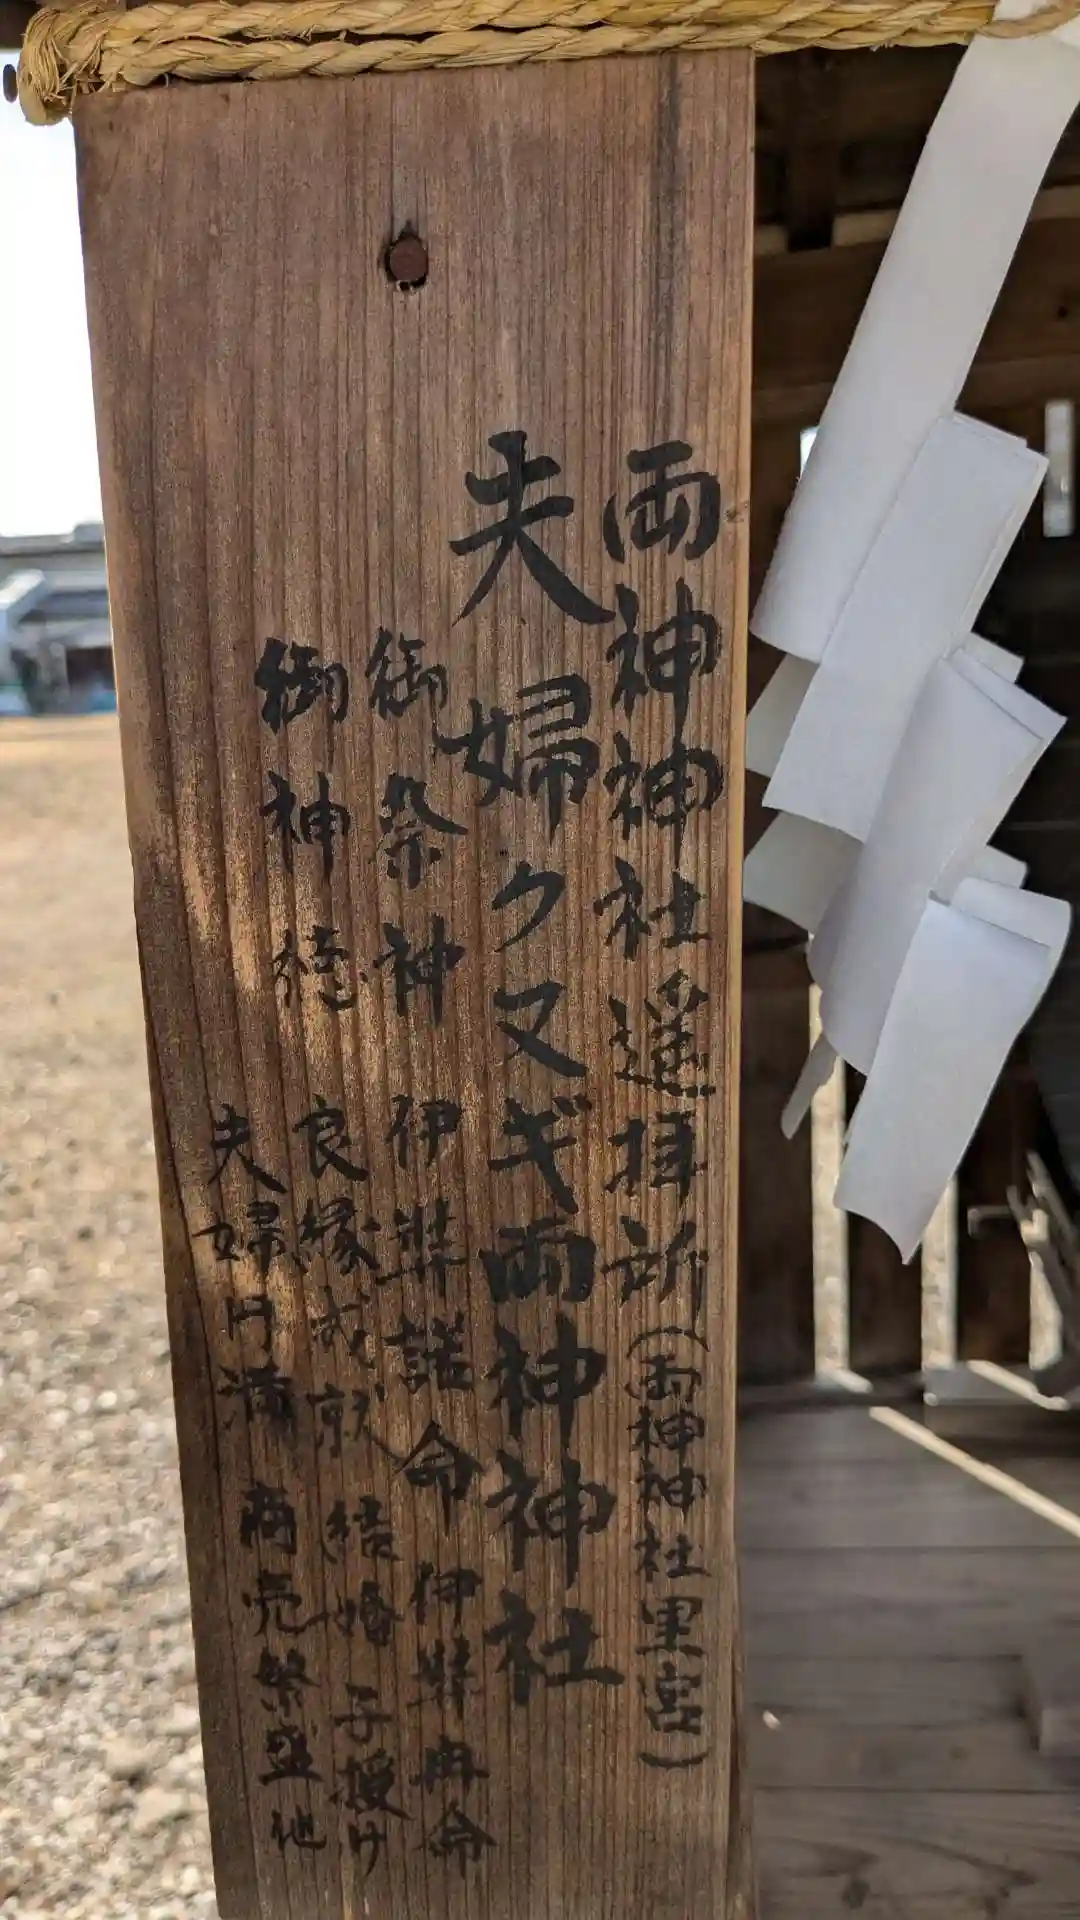 両神神社遥拝所(両神神社里宮)
夫婦クヌギ両神神社
御祭神 伊弉諾命 伊弉冉命
御神徳 良縁成就 結婚 子授け
夫婦円満 商売繁盛 他